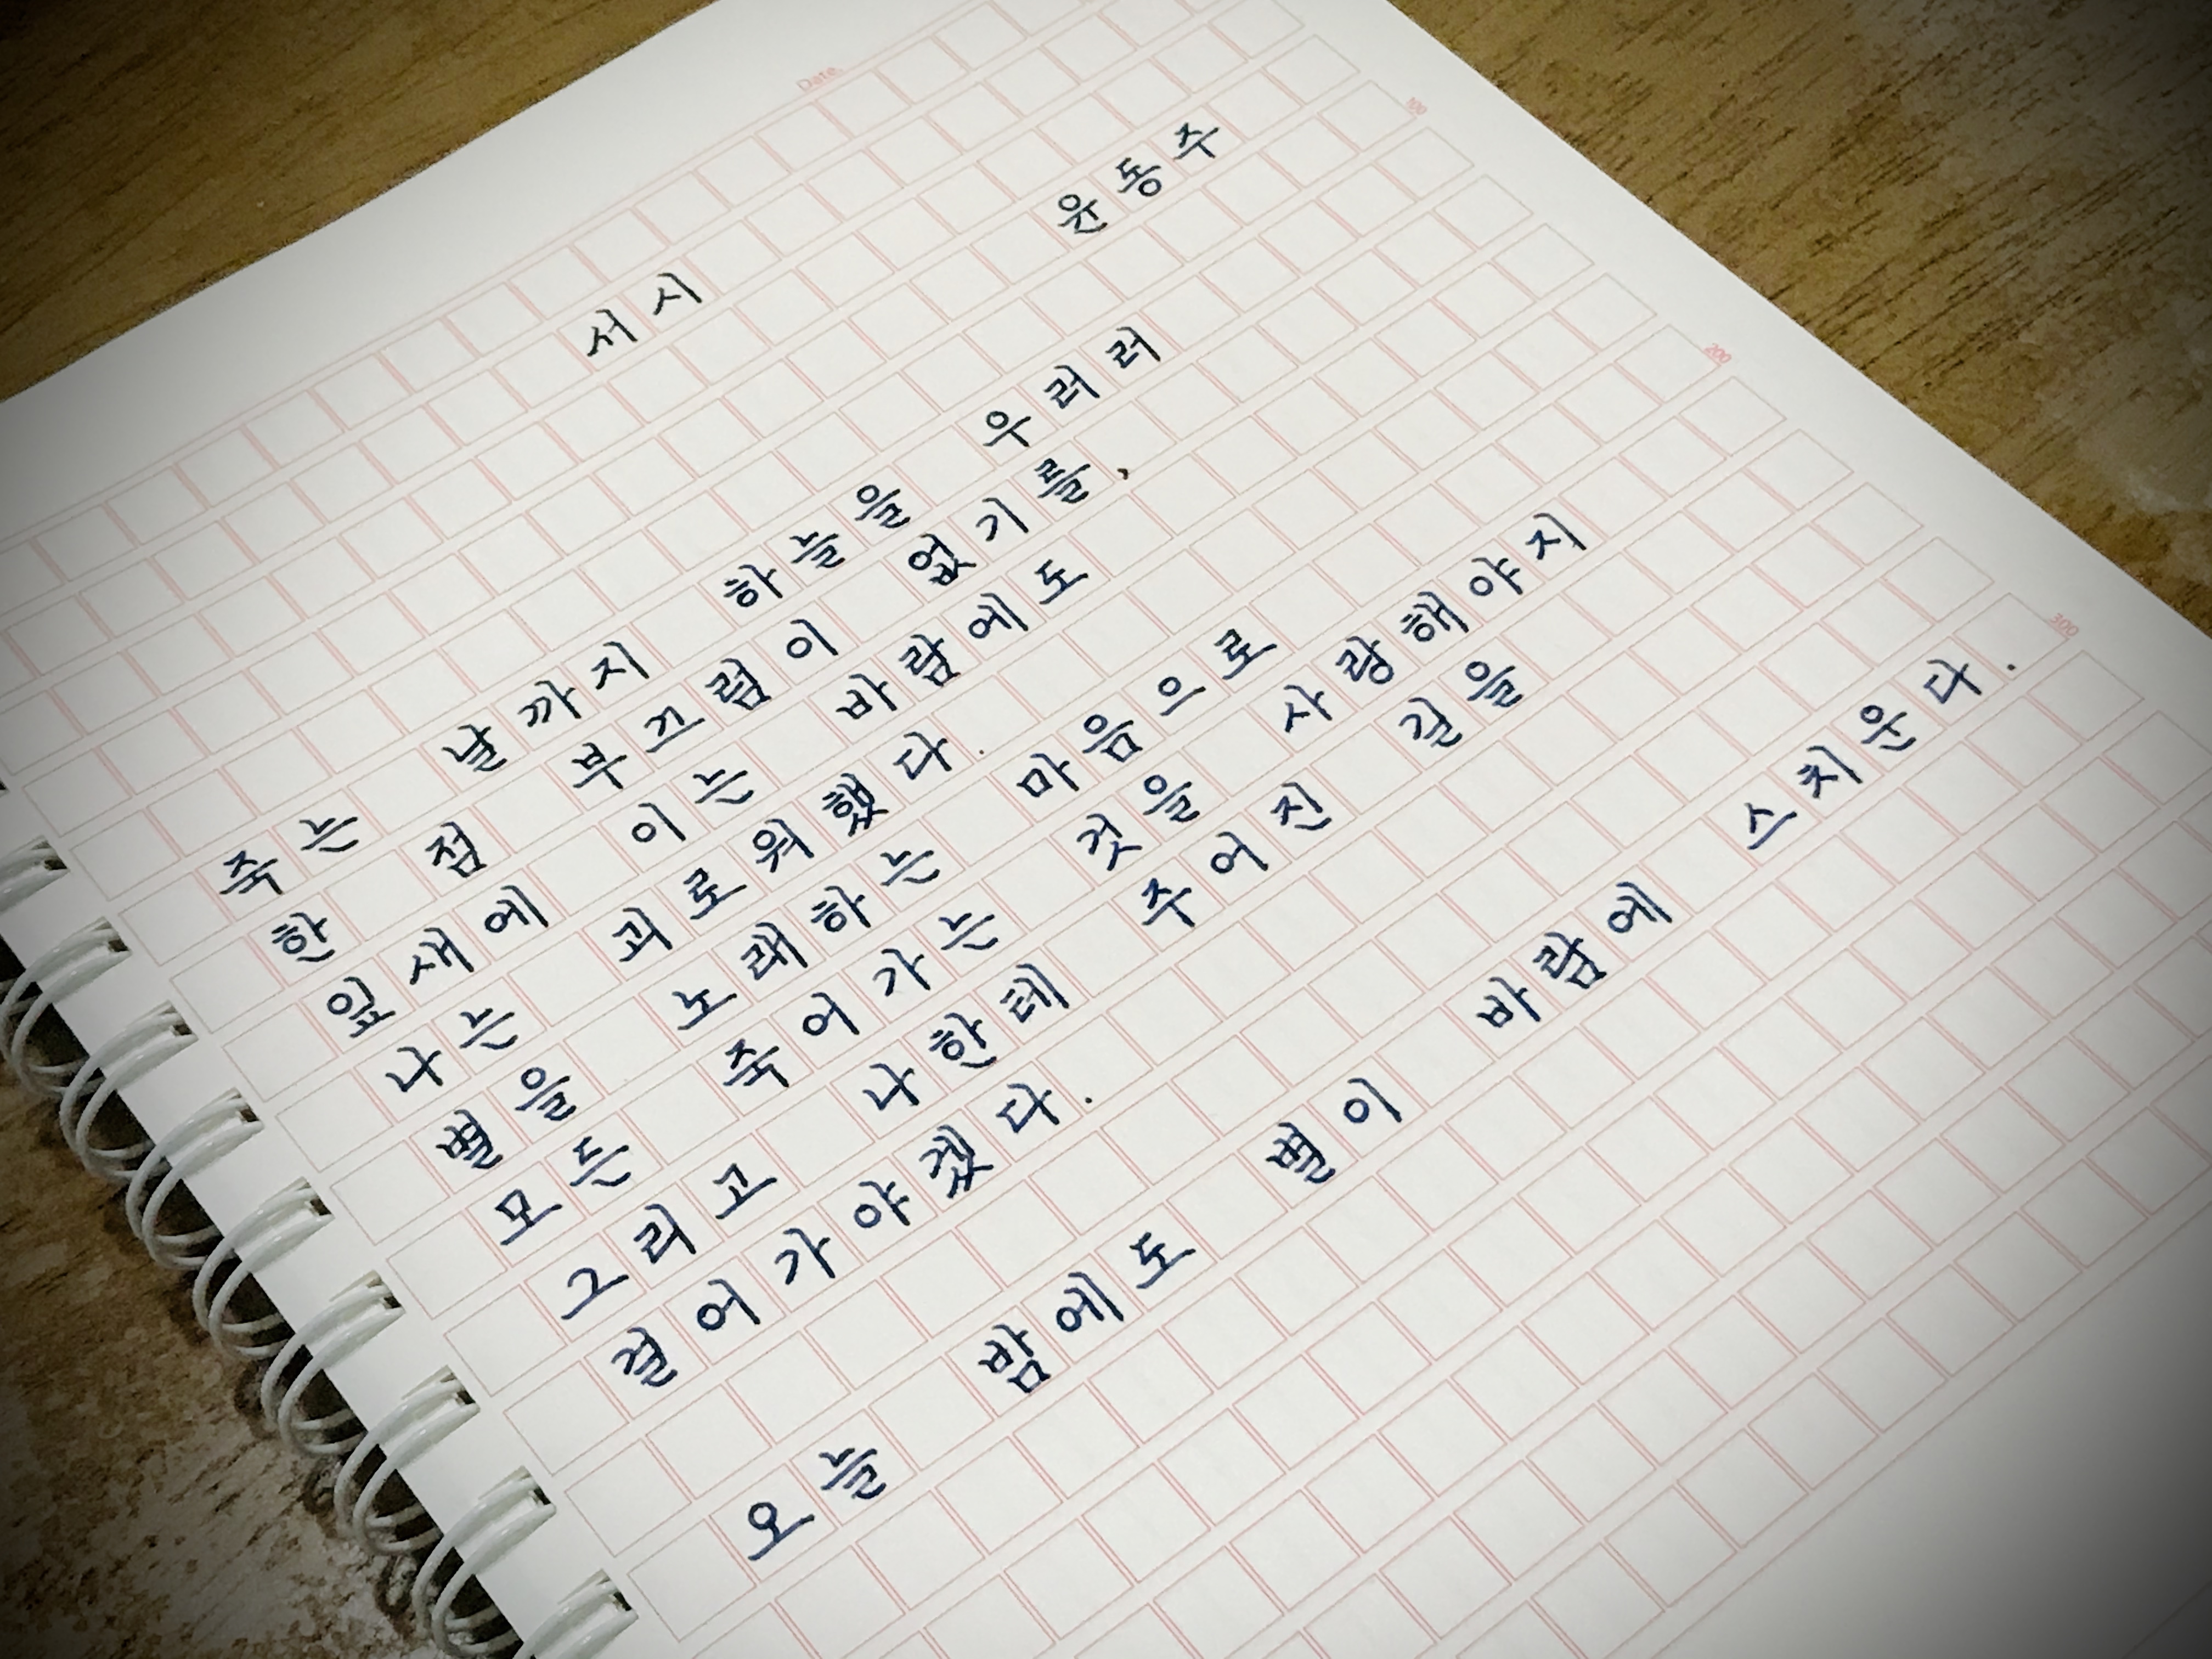 Date.
서시
윤동주
100
죽는 날까지 하늘을 우러러
한 점 부끄럼이 없기를,
잎새에 이는 바람에도
나는 괴로워했다.
200
별을 노래하는 마음으로
모든 죽어가는 것을 사랑해야지
그리고 나한테 주어진 길을
걸어가야겠다.
300
오늘 밤에도 별이 바람에 스치운다.